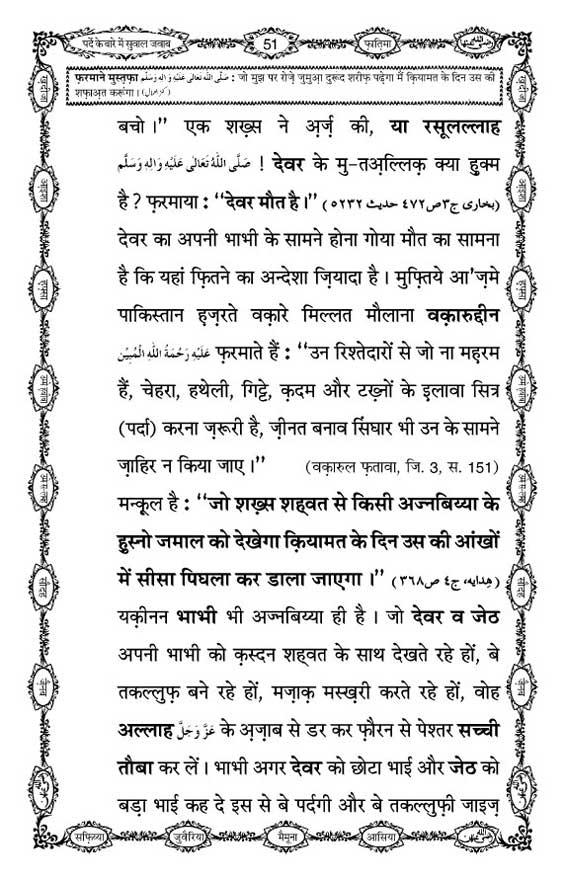 पर्दे के बारे में सुवाल जवाब
51
फ़ातिमा
फ़रमाने मुस्तफ़ा صَلَّى اللهُ تَعَالٰى عَلَيْهِ وَاٰلِهٖ وَسَلَّم : जो मुझ पर रोज़े जुमुआ़ दुरूद शरीफ़ पढ़ेगा मैं क़ियामत के दिन उस की
शफ़ाअ़त करूंगा। (کنز العمال)
बचो ।" एक शख़्स ने अ़र्ज़ की, या रसूलल्लाह
صَلَّى اللهُ تَعَالٰى عَلَيْهِ وَاٰلِهٖ وَسَلَّم ! देवर के मु-तअ़ल्लिक़ क्या हुक्म
है ? फ़रमाया : "देवर मौत है ।" (بخاری ج۳ص٤٧٢ حدیث ٥٢٣٢)
देवर का अपनी भाभी के सामने होना गोया मौत का सामना
है कि यहां फ़ितने का अन्देशा ज़ियादा है । मुफ़्तिये आ'ज़मे
पाकिस्तान ह़ज़रते वक़ारे मिल्लत मौलाना वक़ारुद्दीन
عَلَيْهِ رَحْمَةُ اللهِ الْمُبِيْن फ़रमाते हैं : "उन रिश्तेदारों से जो ना मह़रम
हैं, चेहरा, हथेली, गिट्टे, क़दम और टख़्नों के इ़लावा सित्र
(पर्दा) करना ज़रूरी है, ज़ीनत बनाव सिंघार भी उन के सामने
ज़ाहिर न किया जाए ।" (वक़ारुल फ़तावा, जि. 3, स. 151)
मन्क़ूल है : "जो शख़्स शह्वत से किसी अज्नबिय्या के
हुस्नो जमाल को देखेगा क़ियामत के दिन उस की आंखों
में सीसा पिघला कर डाला जाएगा ।" (هدایه، ج٤ ص٣٦٨)
यक़ीनन भाभी भी अज्नबिय्या ही है । जो देवर व जेठ
अपनी भाभी को क़स्दन शह्वत के साथ देखते रहे हों, बे
तकल्लुफ़ बने रहे हों, मज़ाक़ मस्ख़री करते रहे हों, वोह
अल्लाह عَزَّوَجَلَّ के अ़ज़ाब से डर कर फ़ौरन से पेश्तर सच्ची
तौबा कर लें । भाभी अगर देवर को छोटा भाई और जेठ को
बड़ा भाई कह दे इस से बे पर्दगी और बे तकल्लुफ़ी जाइज़
सफ़िय्या
जुवैरिया
मैमूना
आसिया